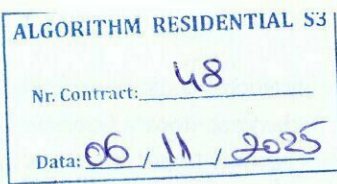 ALGORITHM RESIDENTIAL S3
Nr. Contract: 48
Data: 06 / 11 / 2025